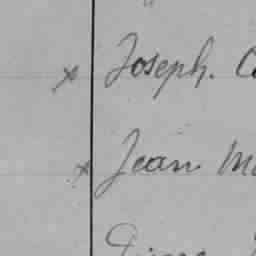 x Joseph. C
x Jean M